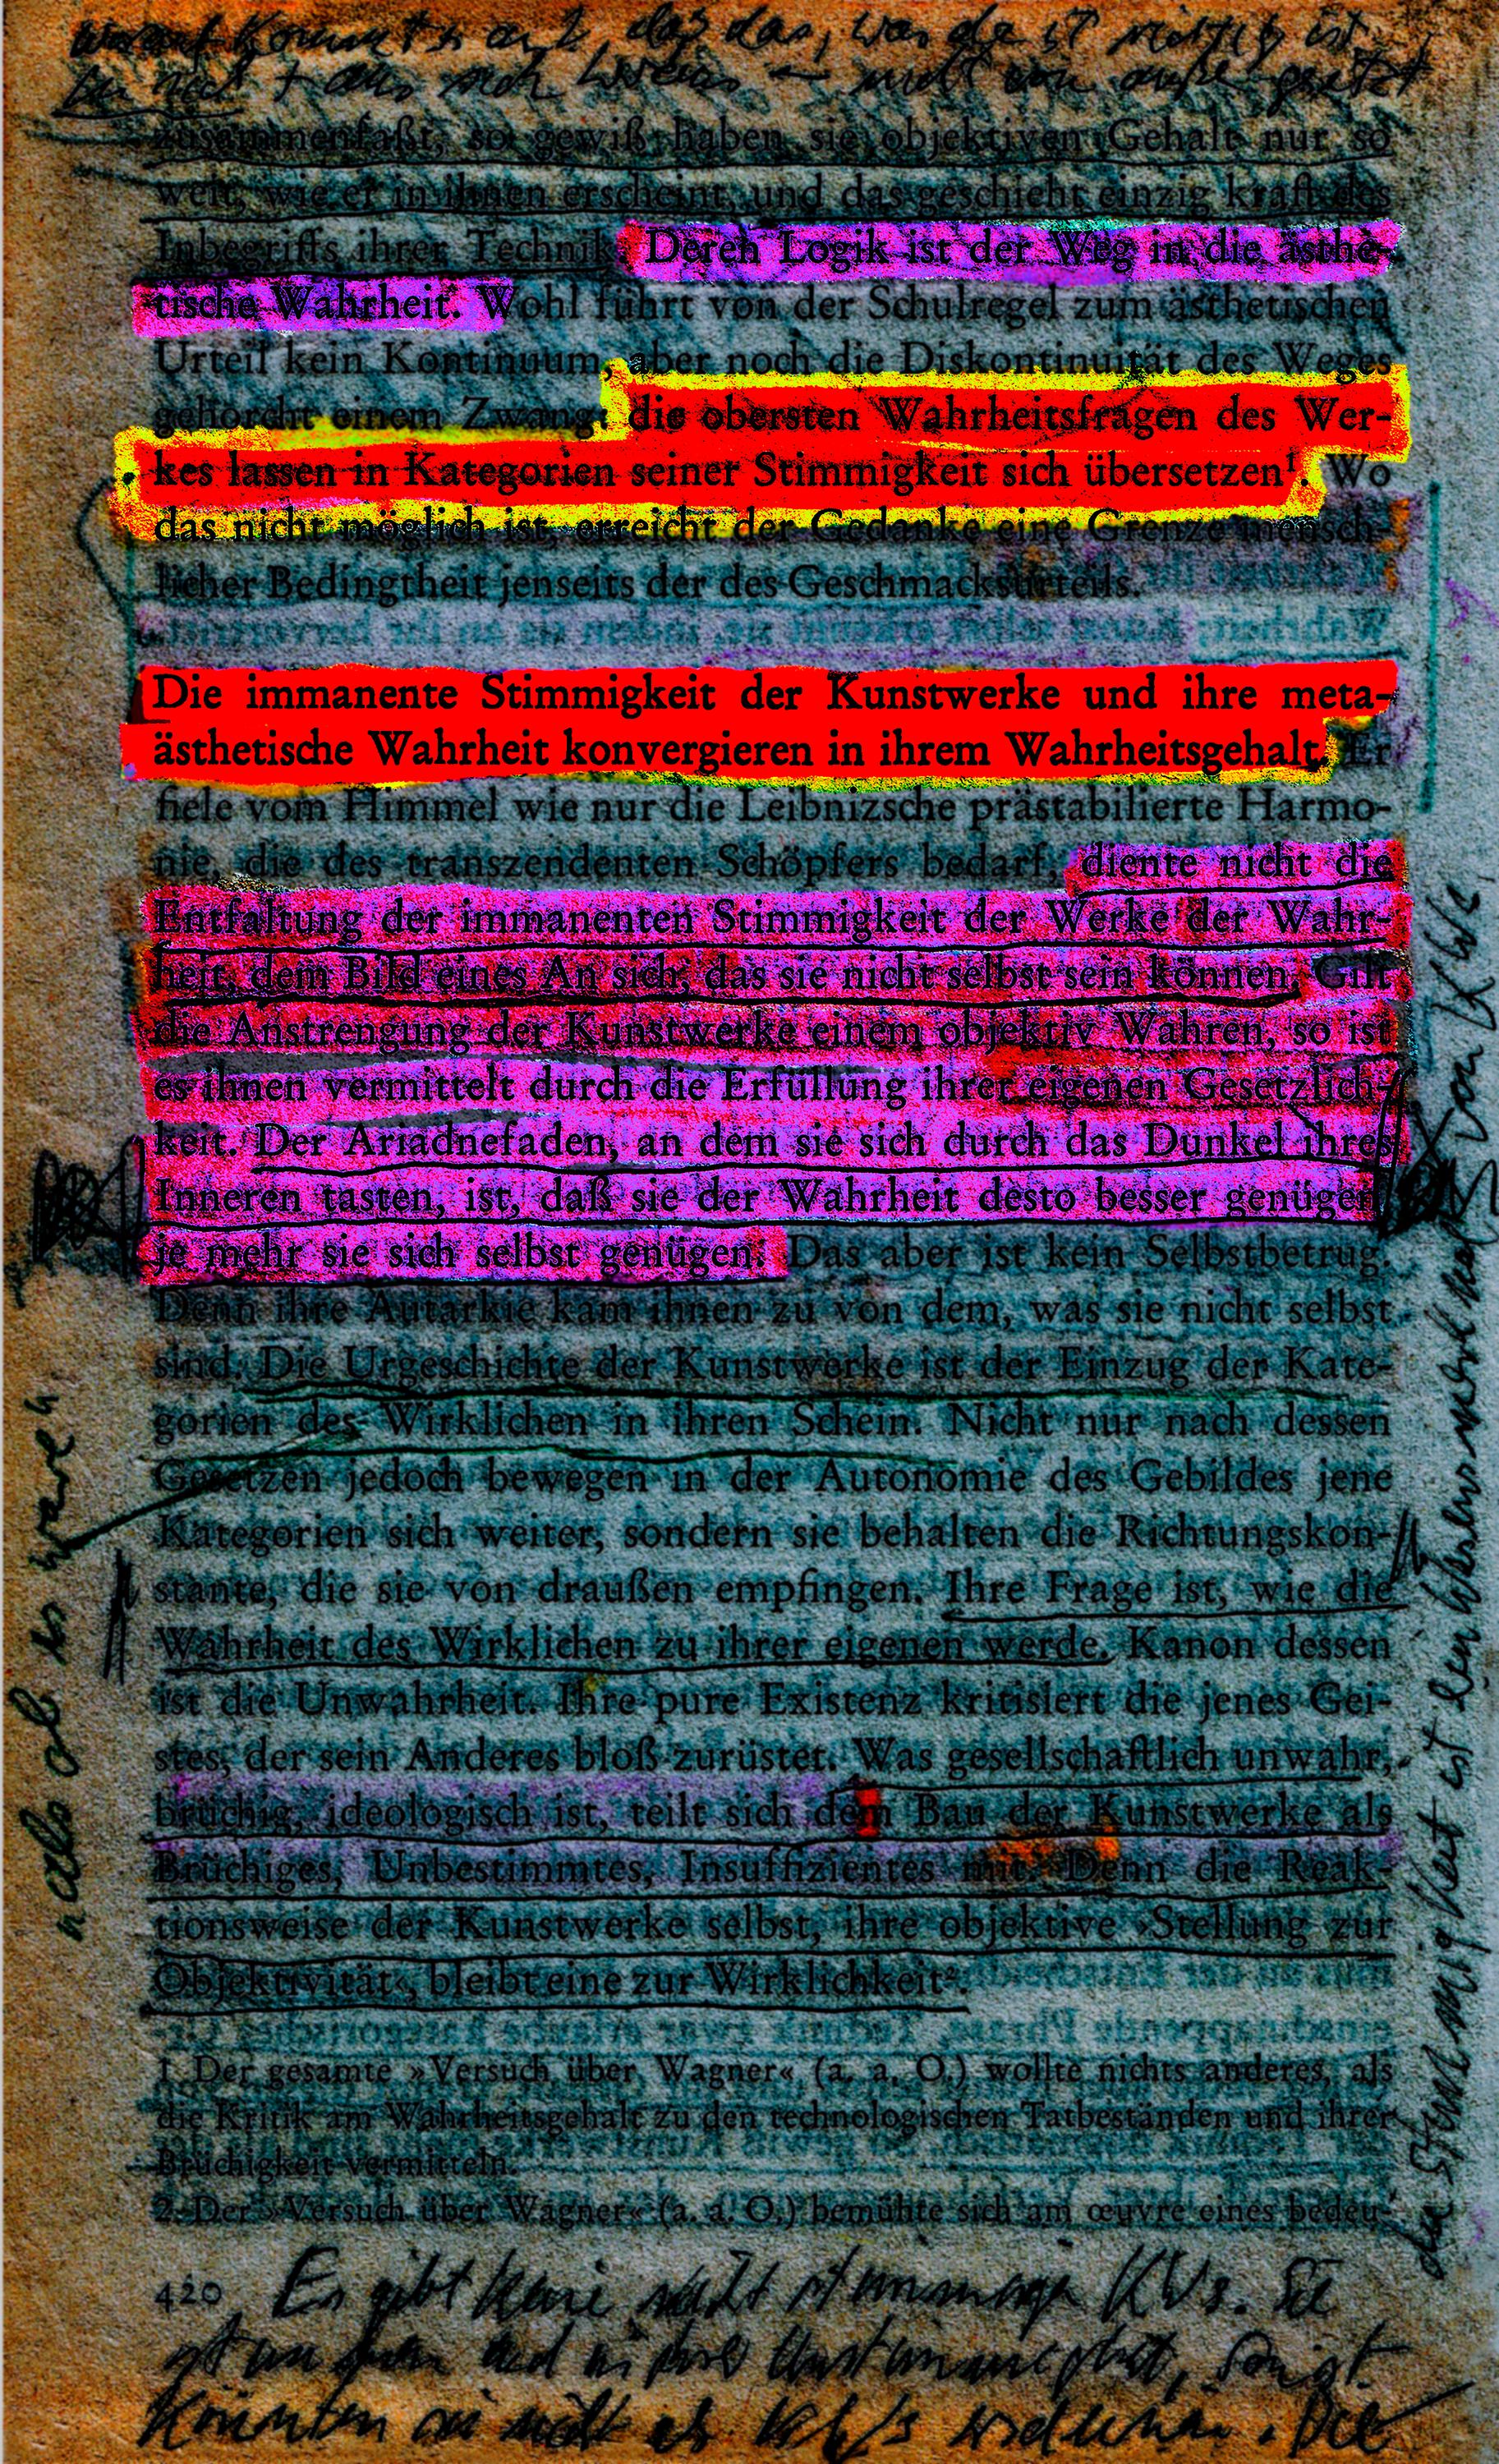 zusammenfaßt, so gewiß haben sie objektiven Gehalt nur so
weit, wie er in ihnen erscheint, und das geschieht einzig kraft des
Inbegriffs ihrer Technik. Deren Logik ist der Weg in die ästhe-
tische Wahrheit. Wohl führt von der Schulregel zum ästhetischen
Urteil kein Kontinuum, aber noch die Diskontinuität des Weges
gehorcht einem Zwang: die obersten Wahrheitsfragen des Wer-
kes lassen in Kategorien seiner Stimmigkeit sich übersetzen¹. Wo
das nicht möglich ist, erreicht der Gedanke eine Grenze mensch-
licher Bedingtheit jenseits der des Geschmacksurteils.
Die immanente Stimmigkeit der Kunstwerke und ihre meta-
ästhetische Wahrheit konvergieren in ihrem Wahrheitsgehalt. Er
fiele vom Himmel wie nur die Leibnizsche prästabilierte Harmo-
nie, die des transzendenten Schöpfers bedarf, diente nicht die
Entfaltung der immanenten Stimmigkeit der Werke der Wahr-
heit, dem Bild eines An sich, das sie nicht selbst sein können. Gilt
die Anstrengung der Kunstwerke einem objektiv Wahren, so ist
es ihnen vermittelt durch die Erfüllung ihrer eigenen Gesetzlich-
keit. Der Ariadnefaden, an dem sie sich durch das Dunkel ihres
Inneren tasten, ist, daß sie der Wahrheit desto besser genügen,
je mehr sie sich selbst genügen. Das aber ist kein Selbstbetrug.
Denn ihre Autarkie kam ihnen zu von dem, was sie nicht selbst
sind. Die Urgeschichte der Kunstwerke ist der Einzug der Kate-
gorien des Wirklichen in ihren Schein. Nicht nur nach dessen
Gesetzen jedoch bewegen in der Autonomie des Gebildes jene
Kategorien sich weiter, sondern sie behalten die Richtungskon-
stante, die sie von draußen empfingen. Ihre Frage ist, wie die
Wahrheit des Wirklichen zu ihrer eigenen werde. Kanon dessen
ist die Unwahrheit. Ihre pure Existenz kritisiert die jenes Gei-
stes, der sein Anderes bloß zurüstet. Was gesellschaftlich unwahr,
brüchig, ideologisch ist, teilt sich dem Bau der Kunstwerke als
Brüchiges, Unbestimmtes, Insuffizientes mit. Denn die Reak-
tionsweise der Kunstwerke selbst, ihre objektive ›Stellung zur
Objektivität‹, bleibt eine zur Wirklichkeit².
1. Der gesamte »Versuch über Wagner« (a. a. O.) wollte nichts anderes, als
die Kritik am Wahrheitsgehalt zu den technologischen Tatbeständen und ihrer
Brüchigkeit vermitteln.
2. Der »Versuch über Wagner« (a. a. O.) bemühte sich am œuvre eines bedeu-
420 Es gibt keine nicht KWs. Sie
als ob es